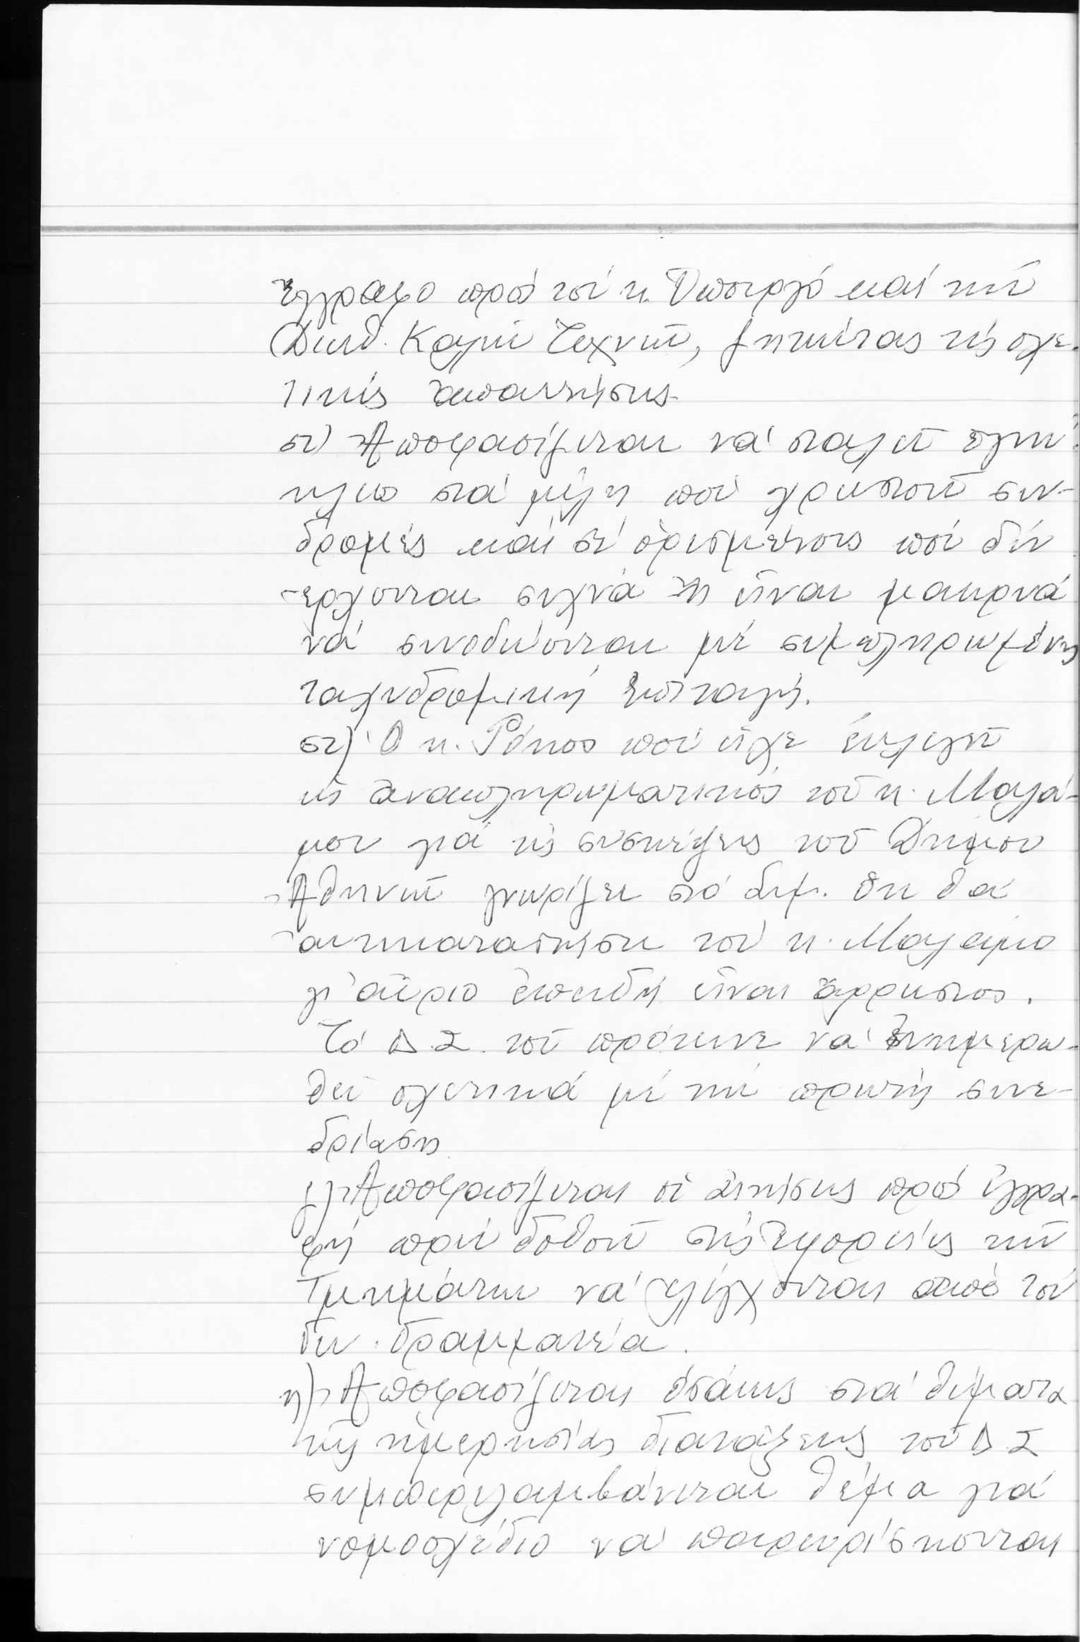 ἔγγραφο πρός τόν κ. Ὑπουργό καί τήν
Διευθ. Καλῶν Τεχνῶν, ζητώντας τίς σχε-
τικές ἀπαντήσεις.
ε) Ἀποφασίζεται νά σταλεῖ ἐγκύ-
κλιο στά μέλη πού χρωστοῦν συν-
δρομές καί σέ ὁρισμένους πού δέν
ἔρχονται συχνά ἤ εἶναι μακρυά
νά συνοδεύονται μέ συμπληρωμένη
ταχυδρομική ἐπιταγή.
στ) Ὁ κ. Ρόκος πού εἶχε ἐκλεγεῖ
ὡς ἀναπληρωματικός τοῦ κ. Μαλά-
μου γιά τίς συσκέψεις τοῦ Δήμου
Ἀθηναίων γνωρίζει στό Συμ. ὅτι θά
ἀντικαταστήσει τόν κ. Μαλάμο
γι' αὔριο ἐπειδή εἶναι ἄρρωστος.
Τό Δ Σ τοῦ πρότεινε νά ἐνημερω-
θεῖ σχετικά μέ τήν πρώτη συνε-
δρίαση
ζ) Ἀποφασίζεται οἱ αἰτήσεις πρός ἐγγρα-
φή πρίν δοθοῦν στίς Ἐφορεῖες τῶν
Τμημάτων νά ἐλέγχονται ἀπό τόν
Γεν. Γραμματέα.
η) Ἀποφασίζεται ὁσάκις στά θέματα
τῆς ἡμερησίας διατάξεως τοῦ Δ Σ
συμπεριλαμβάνεται θέμα γιά
νομοσχέδιο νά παρευρίσκονται